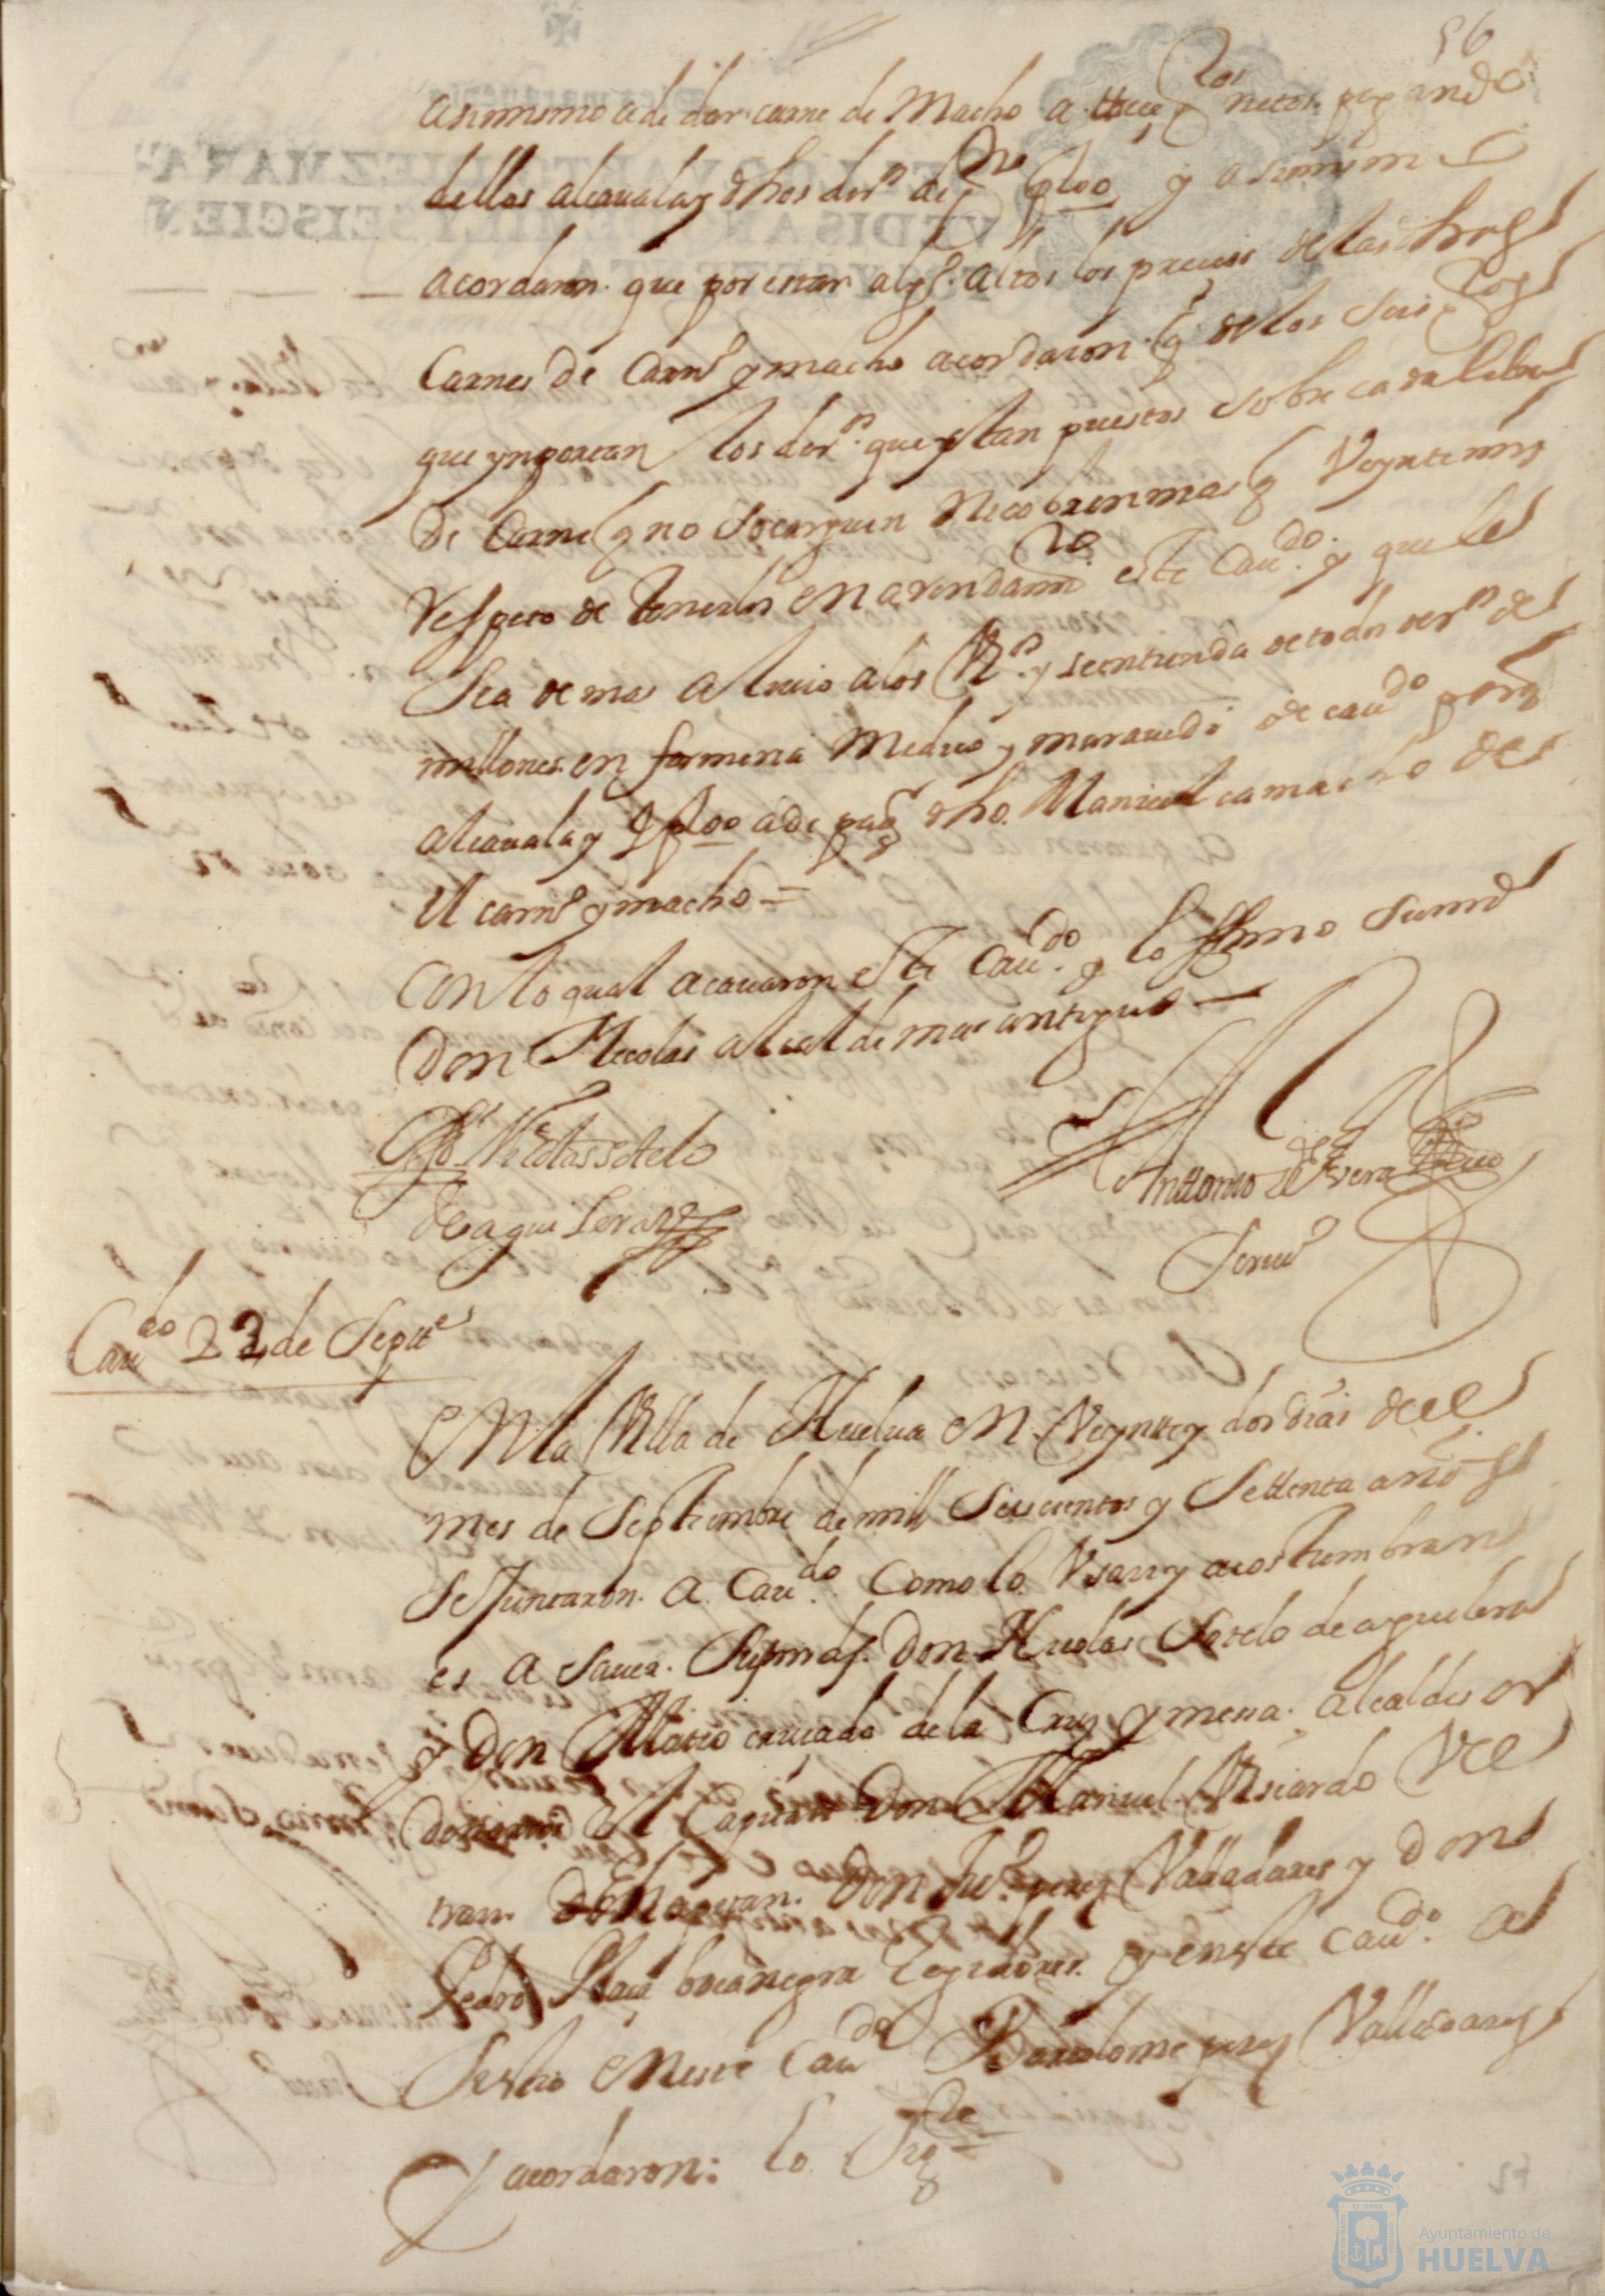 56
asimismo a de dar carne de Macho a trece qtos netos pagando
dellos alcauala y dhos ders de qto y asimism
acordaron. que por estar algo altos los precios de las dhas
Carnes de Carno y macho acordaron q de los seis qtos
que ynportan los ders. que estan puestos sobre cada libra
De Carne q no se carguen ni cobren mas q Veynte mrs
Respeto de tenerlos en arrendamto este Caudo. y que les
Sea de mas aliuio a los Vos. y se entienda de todos ders de
millones en
alcauala y a de pagr dho. Manuel camacho de
El carno y macho =
Con lo qual acauaron este Caudo. y lo firmo Sumd
Don Nicolas alcalde mas antiguo
Nicolas sotelo
de aguilera
Anttonio de Rivera
Scriuo
Caudo 22 de Septe
En la Villa de Huelua en Veyntte y dos dias de el
mes de Septiembre de mill Seiscientos y Settenta años
Se Juntaron. a Caudo. Como lo Usan y acostumbran
es a sauer. Sus mds. Don Nicolas Sotelo de aguilera
y Don Matio cruzado de la Cruz y mena. alcaldes or
dinarios El Capitan Don Manuel Vel
tran Don Juo. perez Valladares y Don
Pedro bocanegra Regidores. y en este Caudo. a
en este Caudo Bartolome perez Valladares
Y acordaron: lo Sigte
Ayuntamiento de
HUELVA